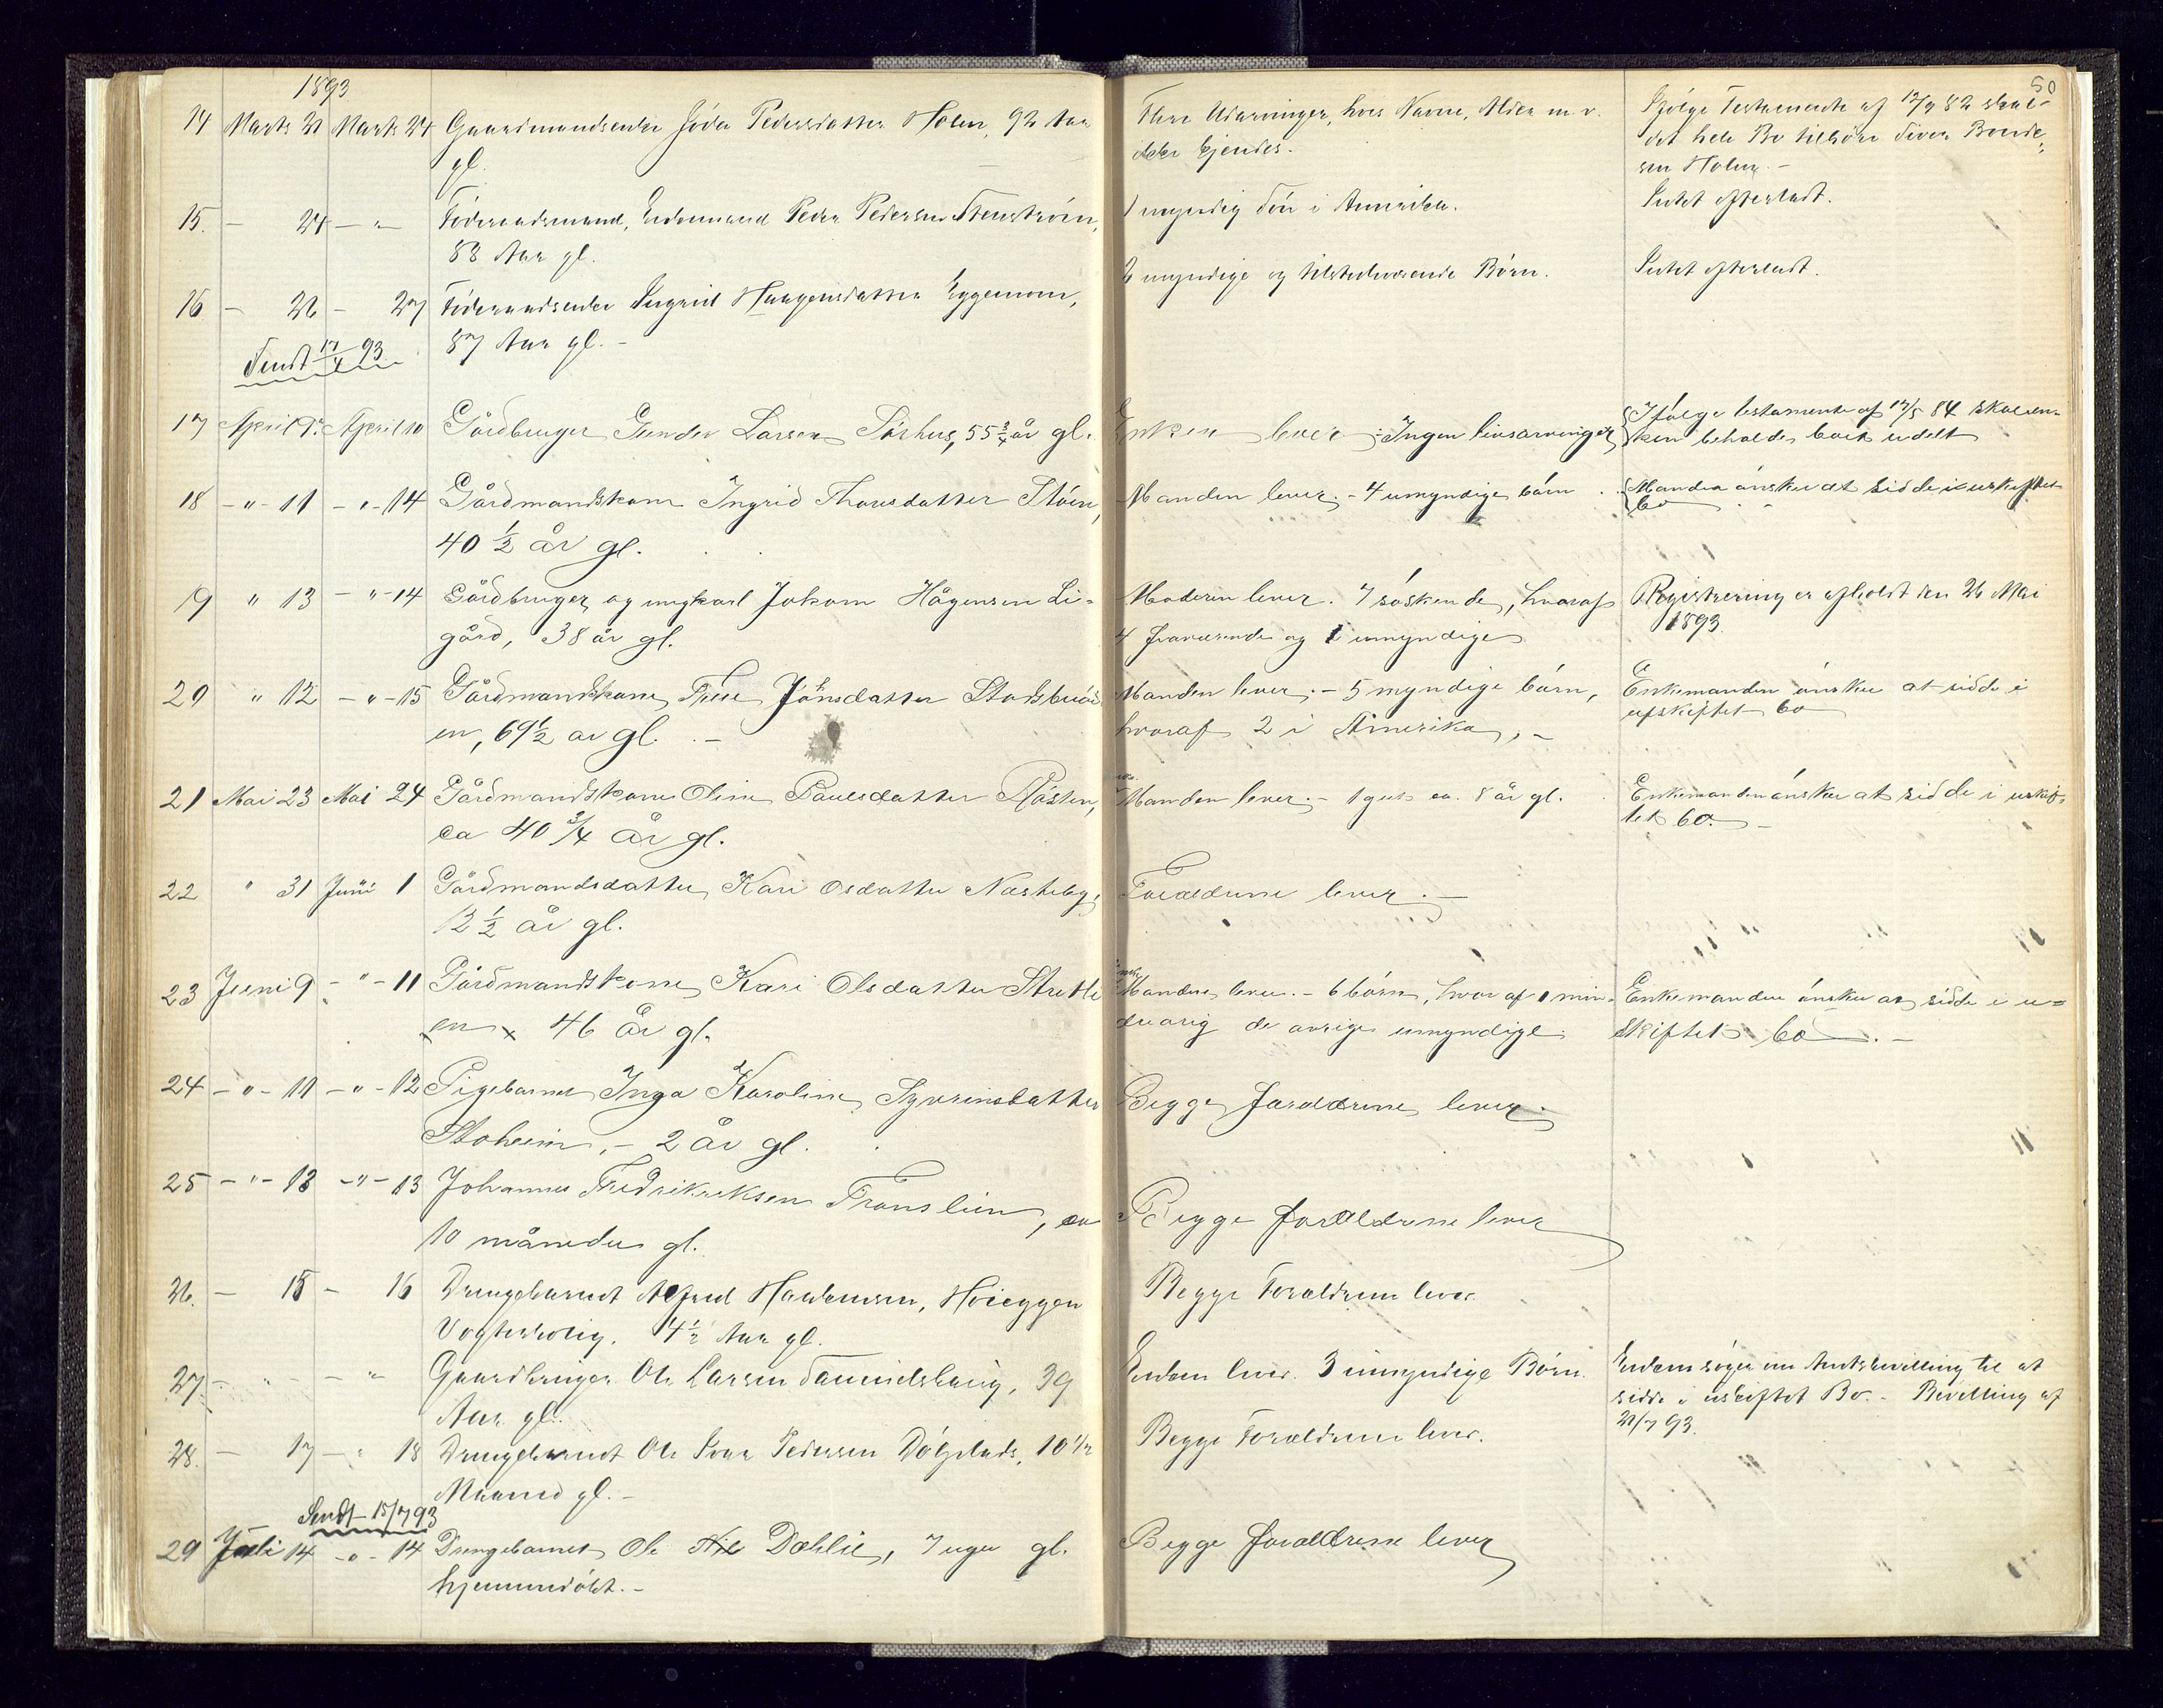 1893
50
14 Marts 21 Marts 24 Gaardmandsenke Pedersdatter Holen, 92 Aar
gl.
Flere Udarvinger, hvis Navne, Alder m. v.
ikke kjendes.
Ifølge Testamente af 82 skal
det hele Bo tilhøre Bonde-
sen Holen. -
15. - 24 - " - Føderaadsmand, Enkemand Peder Pedersen Stenstrøm,
88 Aar gl.
1 myndig Søn i Amerika.
Intet efterladt.
16 - 26 - 27 Føderaadsenke Ingrid Haagensdatter Eggemoen,
87 Aar gl. -
2 myndige og tilstedeværende Børn.
Intet efterladt.
Sendt 17/4 93
17 April April 10 Gårdbruger Gunder Larsen Sørhus, 55 3/4 år gl.
Enken lever. Ingen livsarvinger
Ifølge testamente af 17/5 84 skal en-
ken beholde boet udelt
18 - " - 11 - " - 14 Gårdmandskone Ingrid Thoresdatter Støen,
40 1/2 år gl.
Manden lever. - 4 umyndige børn.
Manden ønsker at sidde i uskiftet
bo
19 " 13 - " - 14 Gårdbruger og ungkarl Jokom Hågensen Li-
gård, 38 år gl.
Moderen lever. 7 søskende, hvoraf
4 fraværende og 1 umyndige
Registrering er afholdt den 26 Mai
1893
20 " 12 - " - 15 Gårdmandskone Jönsdatter Stadsbuøi-
en, 69 1/2 år gl. -
Manden lever. - 5 myndige børn,
hvoraf 2 i Amerika, -
Enkemanden ønsker at sidde i
uskiftet bo
21 Mai 23 Mai 24 Gårdmandskone Oline Paulsdatter Pløsten,
ca 40 3/4 år gl.
Manden lever. - 1 gut ca. 8 år gl.
Enkemanden ønsker at sidde i uskif-
tet bo. -
22 " 31 Juni 1 Gårdmandsdatter Kari Osdatter Nasteby,
12 1/2 år gl.
Forældrene lever. -
23 Juni 9 - " - 11 Gårdmandskone Kari Olsdatter Stretli
en x 46 år gl.
Manden lever. - 6 børn, hvoraf 1 min-
dreårig de øvrige umyndige
Enkemanden ønsker at sidde i u-
skiftet bo. -
24 - " - 11 - " - 12 Pigebarnet Inga Karoline Syverinsdatter
Stoheim, - 2 år gl.
Begge forældrene lever.
25 - " - 13 - " - 13 Johannes Fredrikeksen Franslien, ca
10 måneder gl.
Begge forældrene lever
26. - 15 - 16 Drengebarnet Alfred Haakensen, Høieggen
Vogterbolig. 4 1/2 Aar gl.
Begge Forældrene lever.
27. - " - - " Gaardbruger Ole Larsen 39
Aar gl.
Enken lever. 3 umyndige Børn.
Enken søger om Amtsbevilling til at
sidde i uskiftet Bo. - Bevilling af
21/7 93.
28. - 17 - " 18 Drengebarnet Ole Ivar Pedersen 10 1/2
Maaned gl. -
Begge Forældrene lever.
Sendt 15/7 93
29 Juli 14 - " - 14 Drengebarnet Ole Dahlie, 7 uger gl.
hjemmedøbt. -
Begge forældrene lever